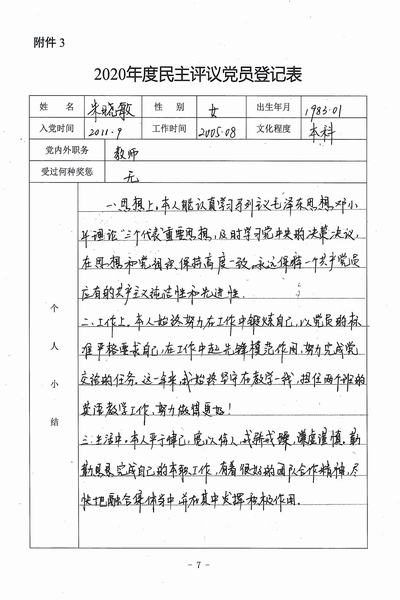 附件 3
2020年度民主评议党员登记表
姓 名 朱晓敏 性 别 女 出生年月 1983.01
入党时间 2011.9 工作时间 2005.08 文化程度 本科
党内外职务 教师
受过何种奖惩 无
个人小结
一、思想上,本人能认真学习马列主义毛泽东思想、邓小
平理论“三个代表”重要思想,及时学习党中央的决策、决议,
在思想和党组织保持高度一致。永远保持一个共产党员
应有的共产主义纯洁性和先进性.
二、工作上,本人始终努力在工作中锻炼自己,以党员的标
准严格要求自己,在工作中起先锋模范作用,努力完成党
交给的任务。这一年来,我始终坚守在教学一线,担任两个班的
英语教学工作,努力做得更好!
三、生活中,本人严于律己,宽以待人,戒骄戒躁,谦虚谨慎,勤
勤恳恳完成自己的本职工作,有着很好的团队合作精神,尽
快地融合集体当中,并在其中发挥积极作用.
- 7 -